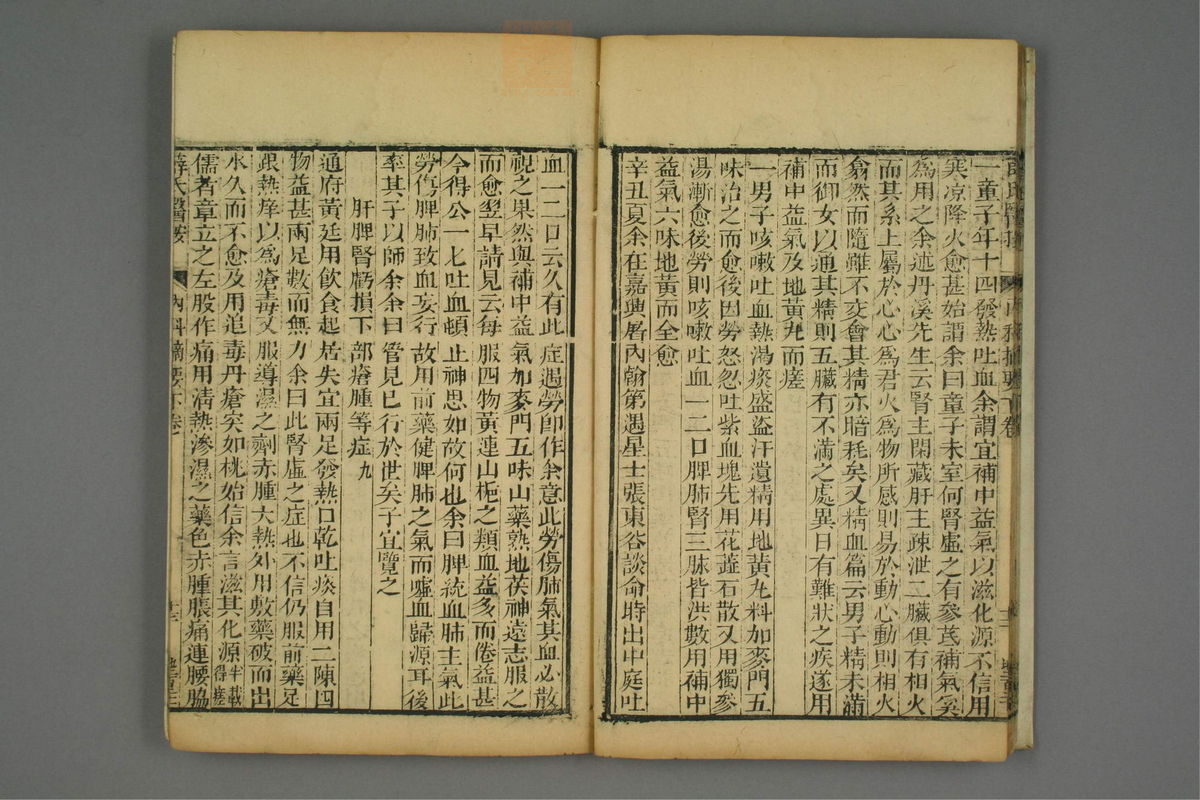 一童子年十四發熱吐血余謂宜補中益氣以滋化源不信用
寒凉降火愈甚始謂余曰童子未室何腎虛之有參芪補氣奚
爲用之余述丹溪先生云腎主閉藏肝主疎泄二臟俱有相火
而其系上屬於心心爲君火爲物所感則易於動心動則相火
翕然而隨雖不交會其精亦暗耗矣又精血篇云男子精未滿
而御女以通其精則五臟有不滿之處異日有難狀之疾遂用
補中益氣及地黃丸而瘥
一男子咳嗽吐血熱渴痰盛盜汗遺精用地黃丸料加麥門五
味治之而愈後因勞怒忽吐紫血塊先用花蕋石散又用獨參
湯漸愈後勞則咳嗽吐血一二口脾肺腎三脉皆洪數用補中
益氣六味地黃而全愈
辛丑夏余在嘉興屠內翰第遇星士張東谷談命時出中庭吐
血一二口云久有此症遇勞卽作余意此勞傷肺氣其血必散
視之果然與補中益氣加麥門五味山藥熟地茯神遠志服之
而愈翌早請見云每服四物黃連山梔之類血益多而倦益甚
今得公一七吐血頓止神思如故何也余曰脾統血肺主氣此
勞傷脾肺致血妄行故用前藥健脾肺之氣而噓血歸源耳後
率其子以師余余曰管見已行於世矣子宜覽之
肝脾腎虧損下部瘡腫等症九
通府黃廷用飲食起居失宜兩足發熱口乾吐痰自用二陳四
物益甚兩足數而無力余曰此腎虛之症也不信仍服前藥足
跟熱痒以爲瘡毒又服導濕之劑赤腫大熱外用敷藥破而出
水久而不愈及用追毒丹瘡突如桃始信余言滋其化源半載得瘥
儒者章立之左股作痛用清熱滲濕之藥色赤腫脹痛連腰脇
薛氏醫按 內科摘要下卷